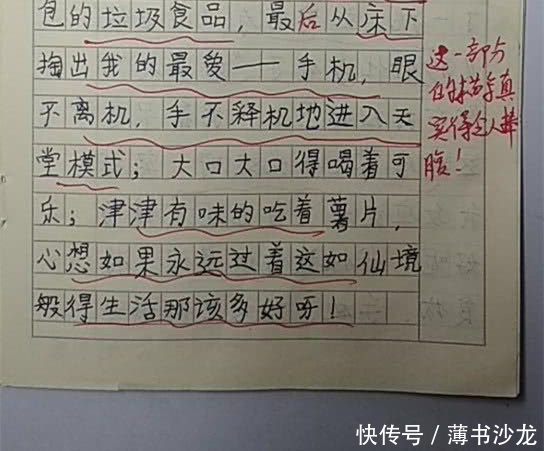 包的垃圾食品，最后从床下
掏出我的最爱——手机，眼
不离机，手不释机地进入天
堂模式；大口大口得喝着可
乐；津津有味的吃着薯片，
心想如果永远过着这如仙境
般得生活那该多好呀！
这一部分
的描写真
实得令人捧
腹！
快传号 / 薄书沙龙